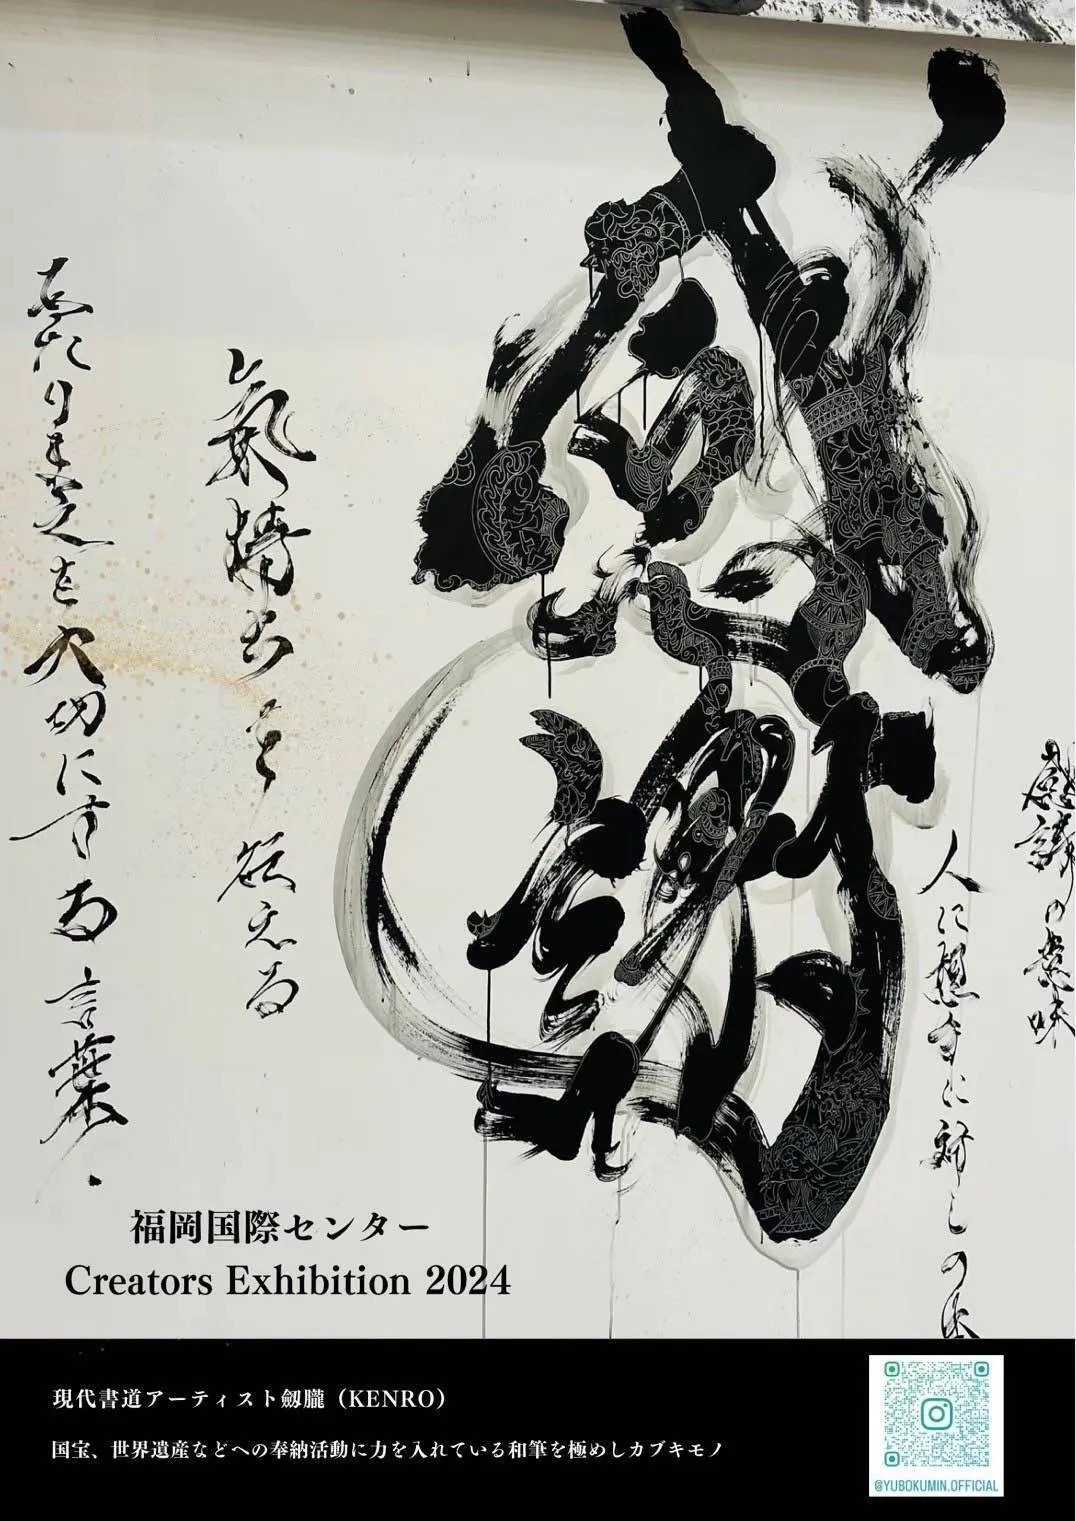 感謝の意味
人に想手に対しの
氣持ちを伝える
あたりま芝を大切にする言葉.
福岡国際センター
Creators Exhibition 2024
現代書道アーティスト劔朧（KENRO）
国宝、世界遺産などへの奉納活動に力を入れている和筆を極めしカブキモノ
@YUBOKUMIN.OFFICIAL